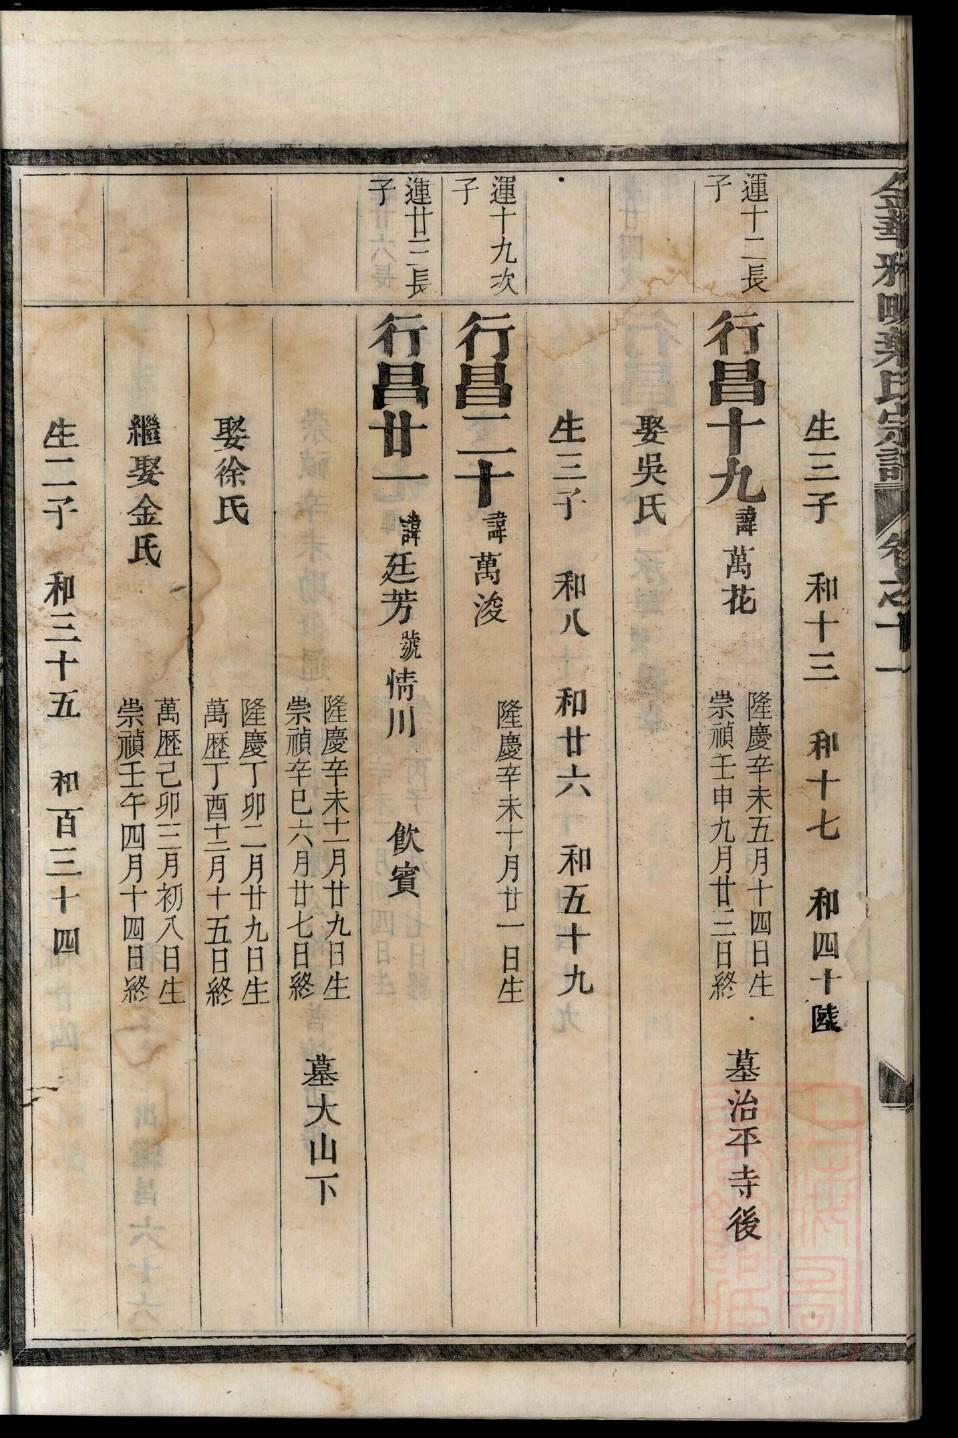 金華雅畈葉氏宗譜 卷之十一
生三子 和十三 和十七 和四十陸
運十二長子
行昌十九 諱萬花 隆慶辛未五月十四日生 崇禎壬申九月廿三日終 墓治平寺後
娶吳氏
生三子 和八 和廿六 和五十九
運十九次子
行昌二十 諱萬浚 隆慶辛未十月廿一日生
運廿二長子
行昌廿一 諱廷芳 號情川 飲賓
隆慶辛未十一月廿九日生 崇禎辛巳六月廿七日終 墓大山下
娶徐氏 隆慶丁卯二月廿九日生 萬歷丁酉十二月十五日終
繼娶金氏 萬歷己卯三月初八日生 崇禎壬午四月十四日終
生二子 和三十五 和百三十四